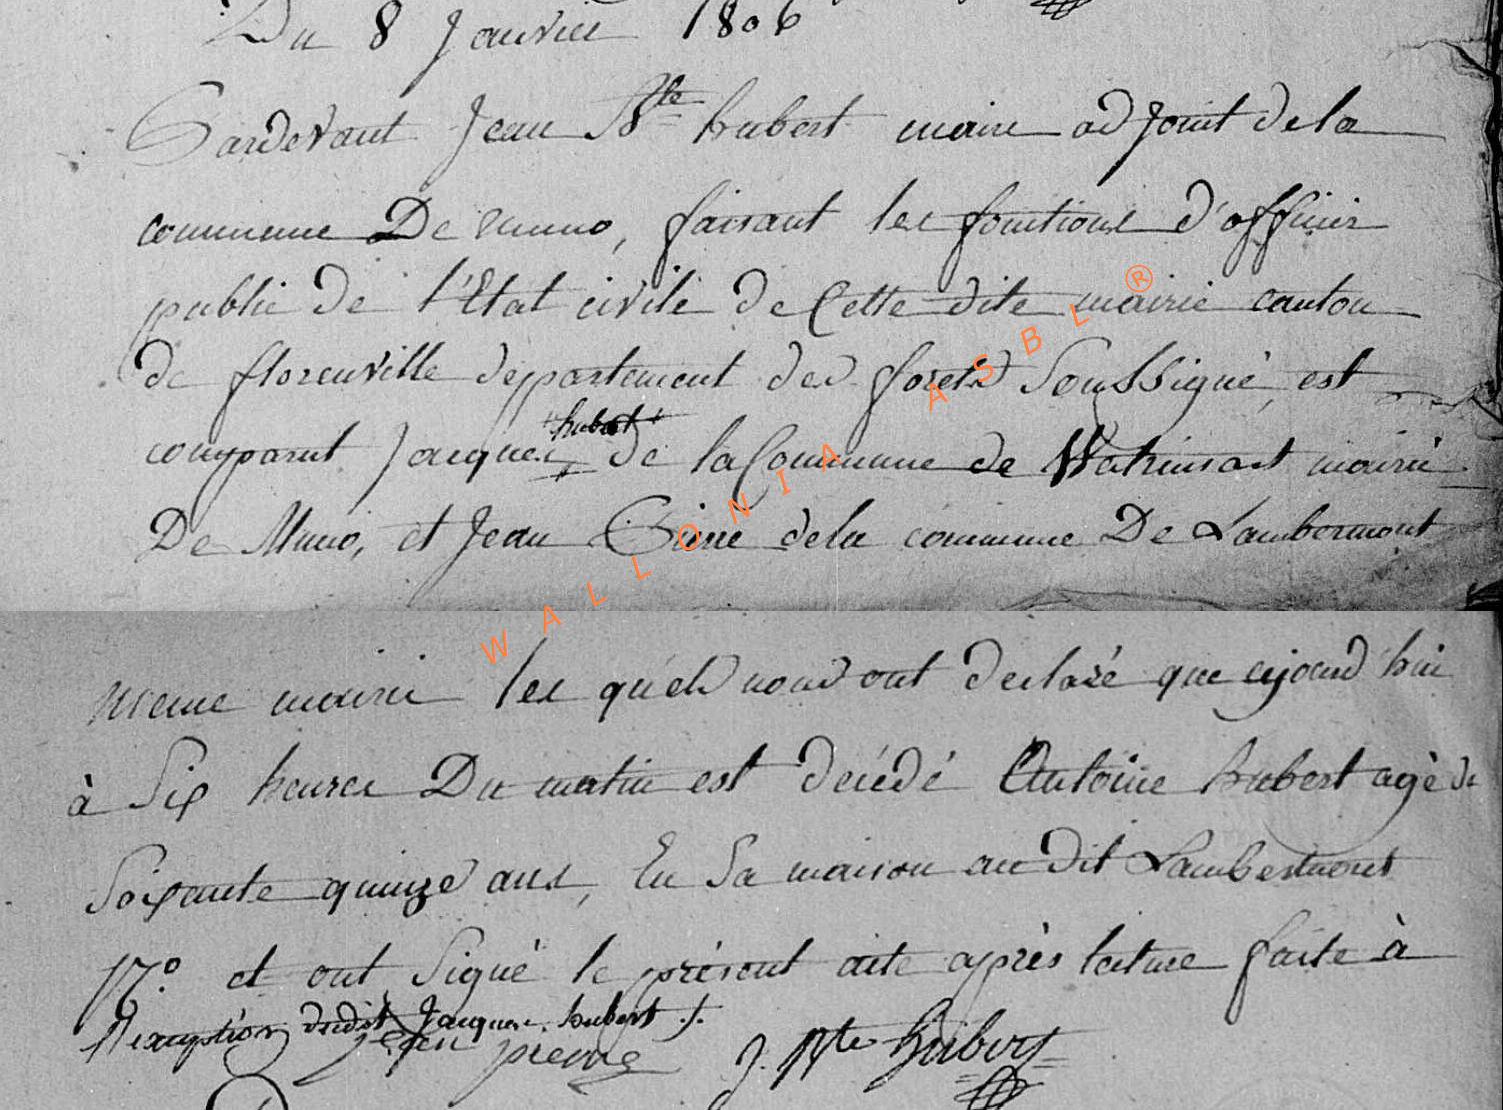 Du 8 Janvier 1806
Pardevant Jean Bte hubert maire adjoint de la
commune De Muno, faisant les fonctions d'officier
public de l'Etat civile de Cette dite mairie canton
de florenville departement des forets Soussigné, est
comparut Jacques hubert de la Commune de Watrinsart mairie
De Muno, et Jean Pierre dela commune De Lambermont
meme mairie les quels nous ont declaré que ajourd'hui
à Six heures Du matin est décédé Antoine hubert agé de
Soixante quinze ans, En Sa maison au dit Lambermont
n° et ont Signé le présent acte après lecture faite à
l'exception dudit Jacques hubert ./.
Jean pierre J. Bte Hubert
WALLONIA ASBL ®